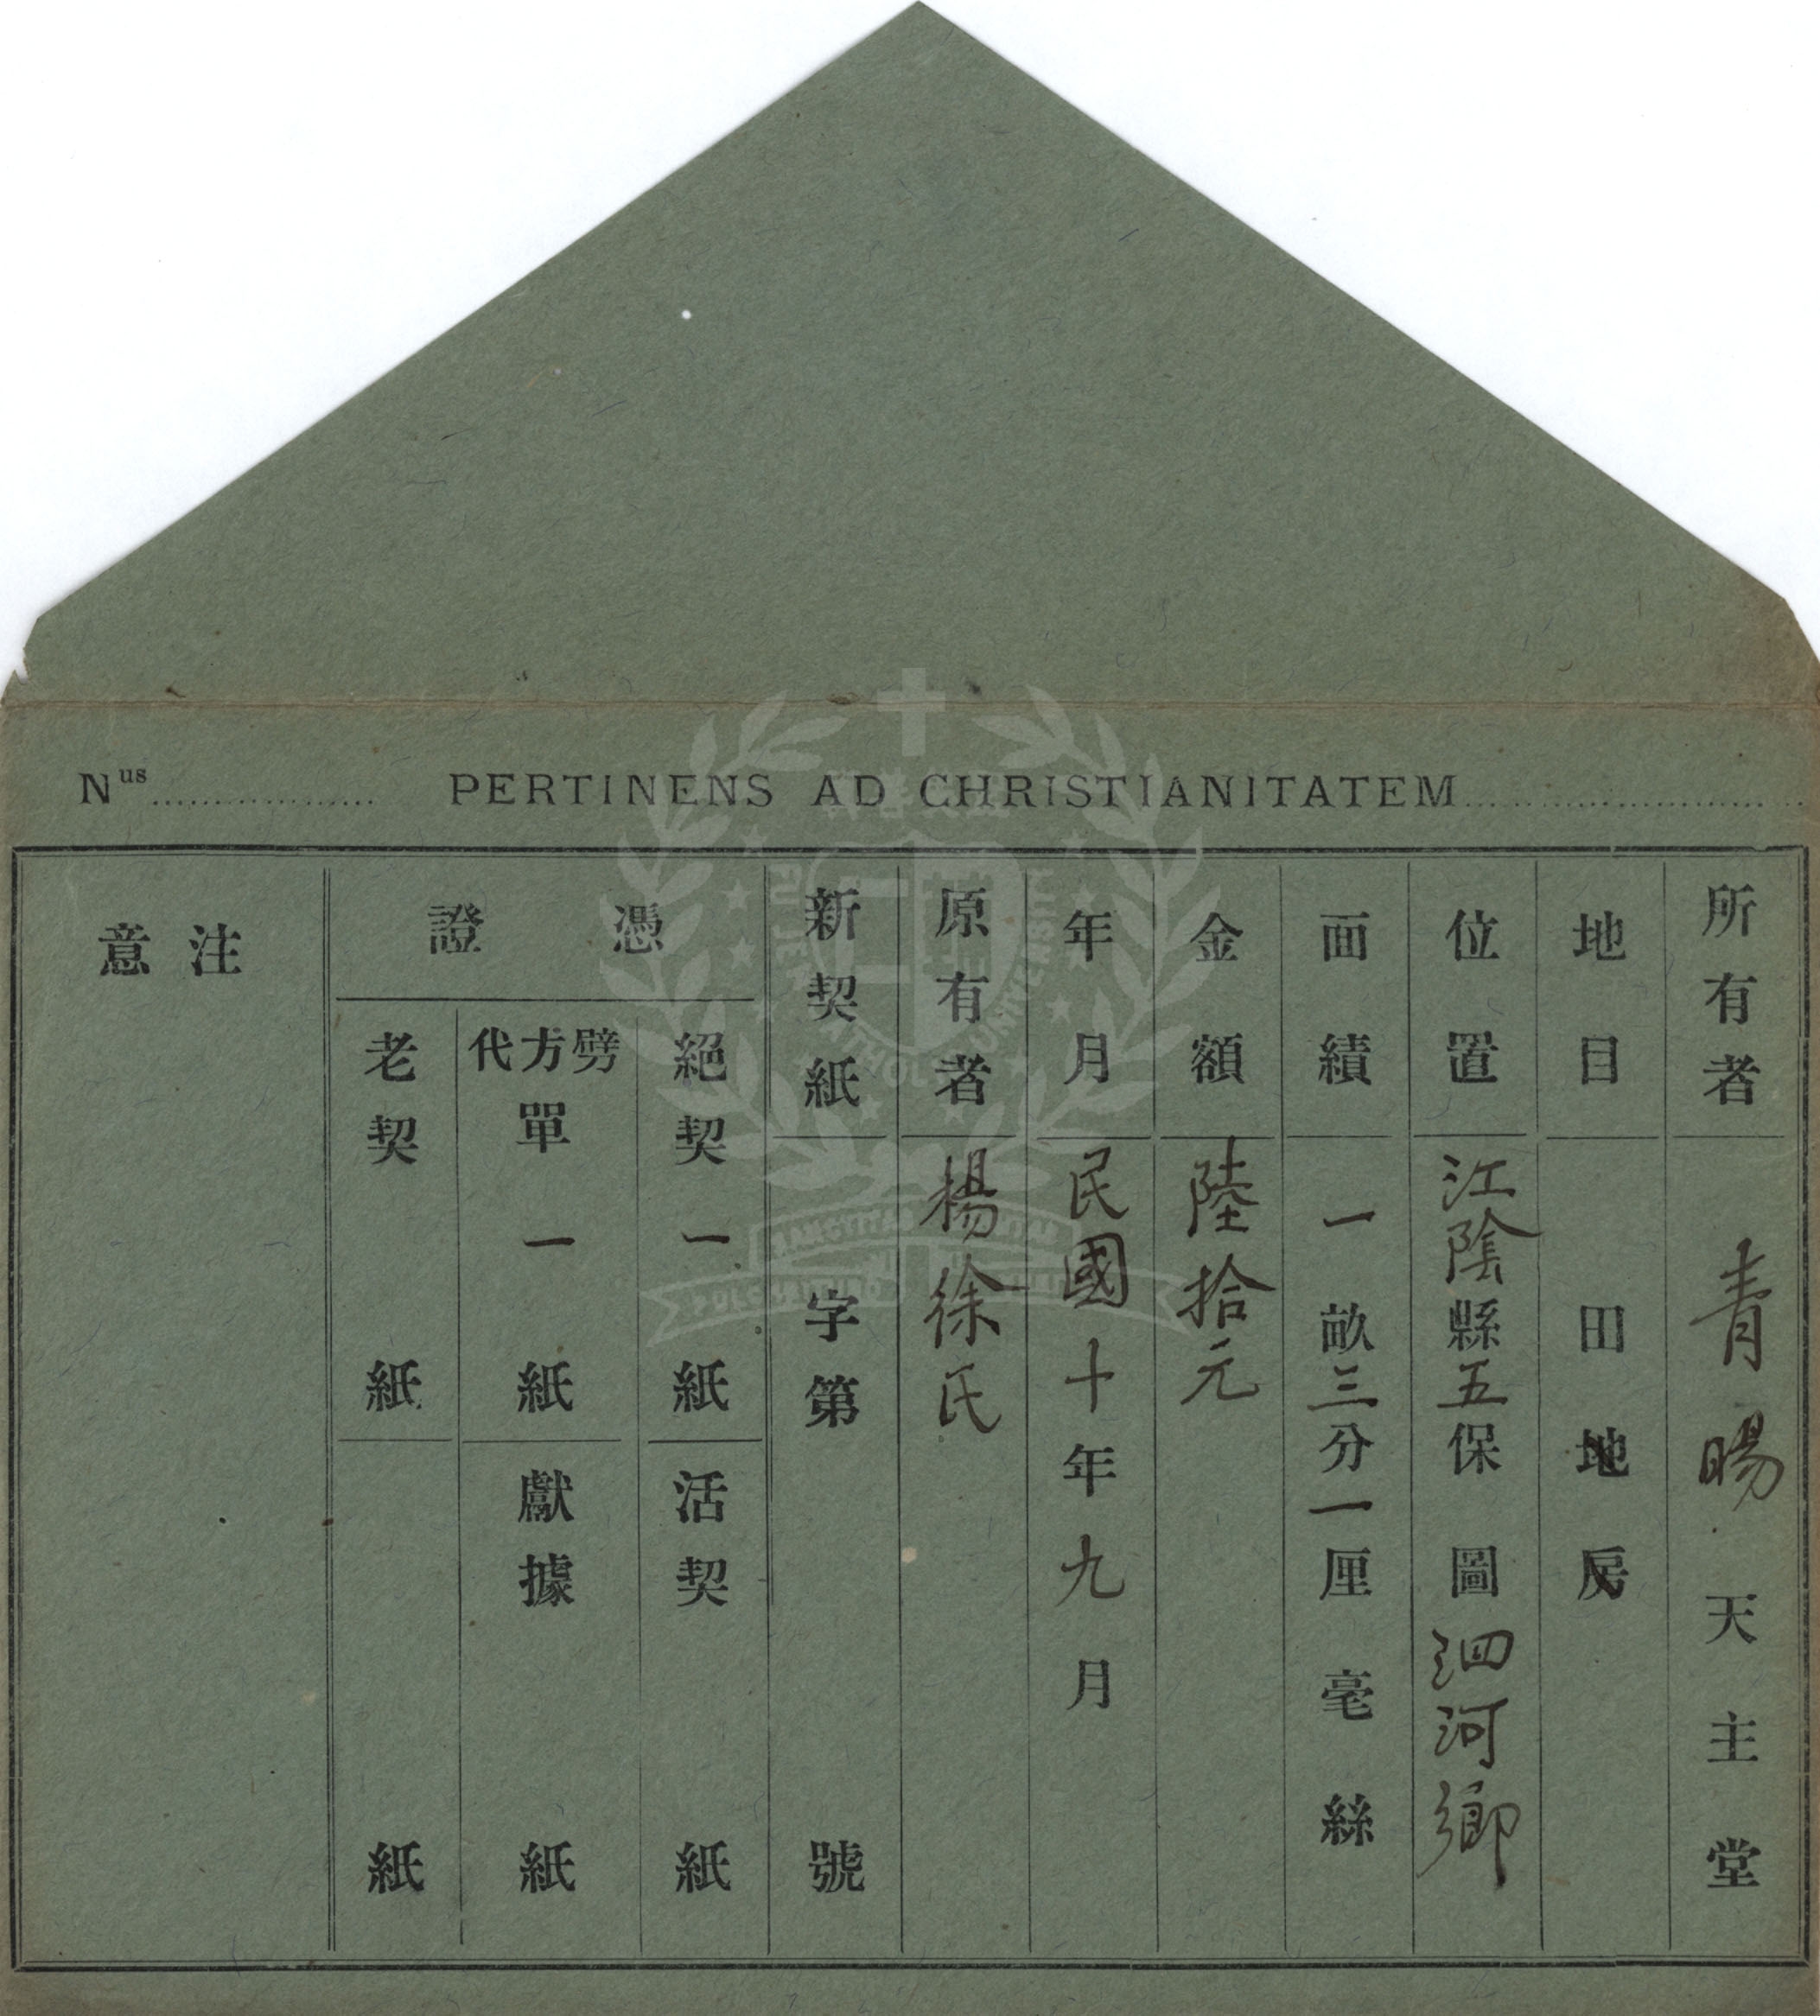 Nus.................. PERTINENS AD CHRISTIANITATEM..........................
所有者 青暘天主堂
地目 田地房
位置 江陰縣五保 圖泗河鄉
面績 一畝三分一厘 毫 絲
金額 陸拾元
年月 民國十年九月
原有者 楊徐氏
新契紙 字第 號
憑證
絕契 一紙
活契 紙
劈方代單 一紙
獻據 紙
老契 紙
紙
注意